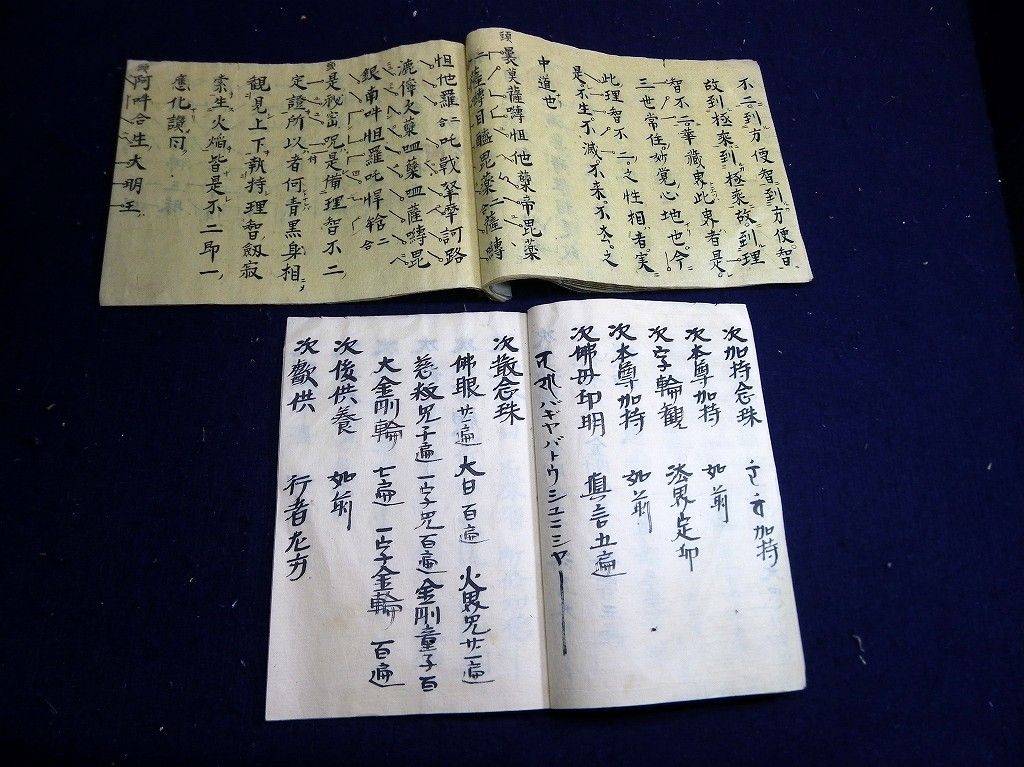 不二到方便智到方便智
故到極楽到極楽故到理
智不二華藏界此界者是
三世常住妙覚心地也今
此理智不二之性相者実
是不生不滅不来不去之
中道也
頭
曩莫薩嚩怛他蘖帝毘薬
二薩嚩目龃毘薬二合薩嚩
怛他羅二合吒戰拏摩訶路
漉俸欠蘖呬蘖呬薩嚩毘
銀南吽怛羅吒悍𤚥二合
是秘密呪是備理智不二
定證所以者何青黒身相
観見上下執持理智釼寂
索生火焔皆是不二即一
應化讃曰
阿吽合生大明王
次加持念珠 加持
次本尊加持 如前
次字輪觀 法界定印
次本尊加持 如前
次佛母印明 真言五遍
バギヤバトウシュニシヤ
次散念珠
佛眼廿一遍 大日百遍 火界咒廿一遍
慈救咒千遍 一字咒百遍 金剛童子百
大金剛輪 七遍 一字金輪 百遍
次後供養 如前
次歡供 行者左方